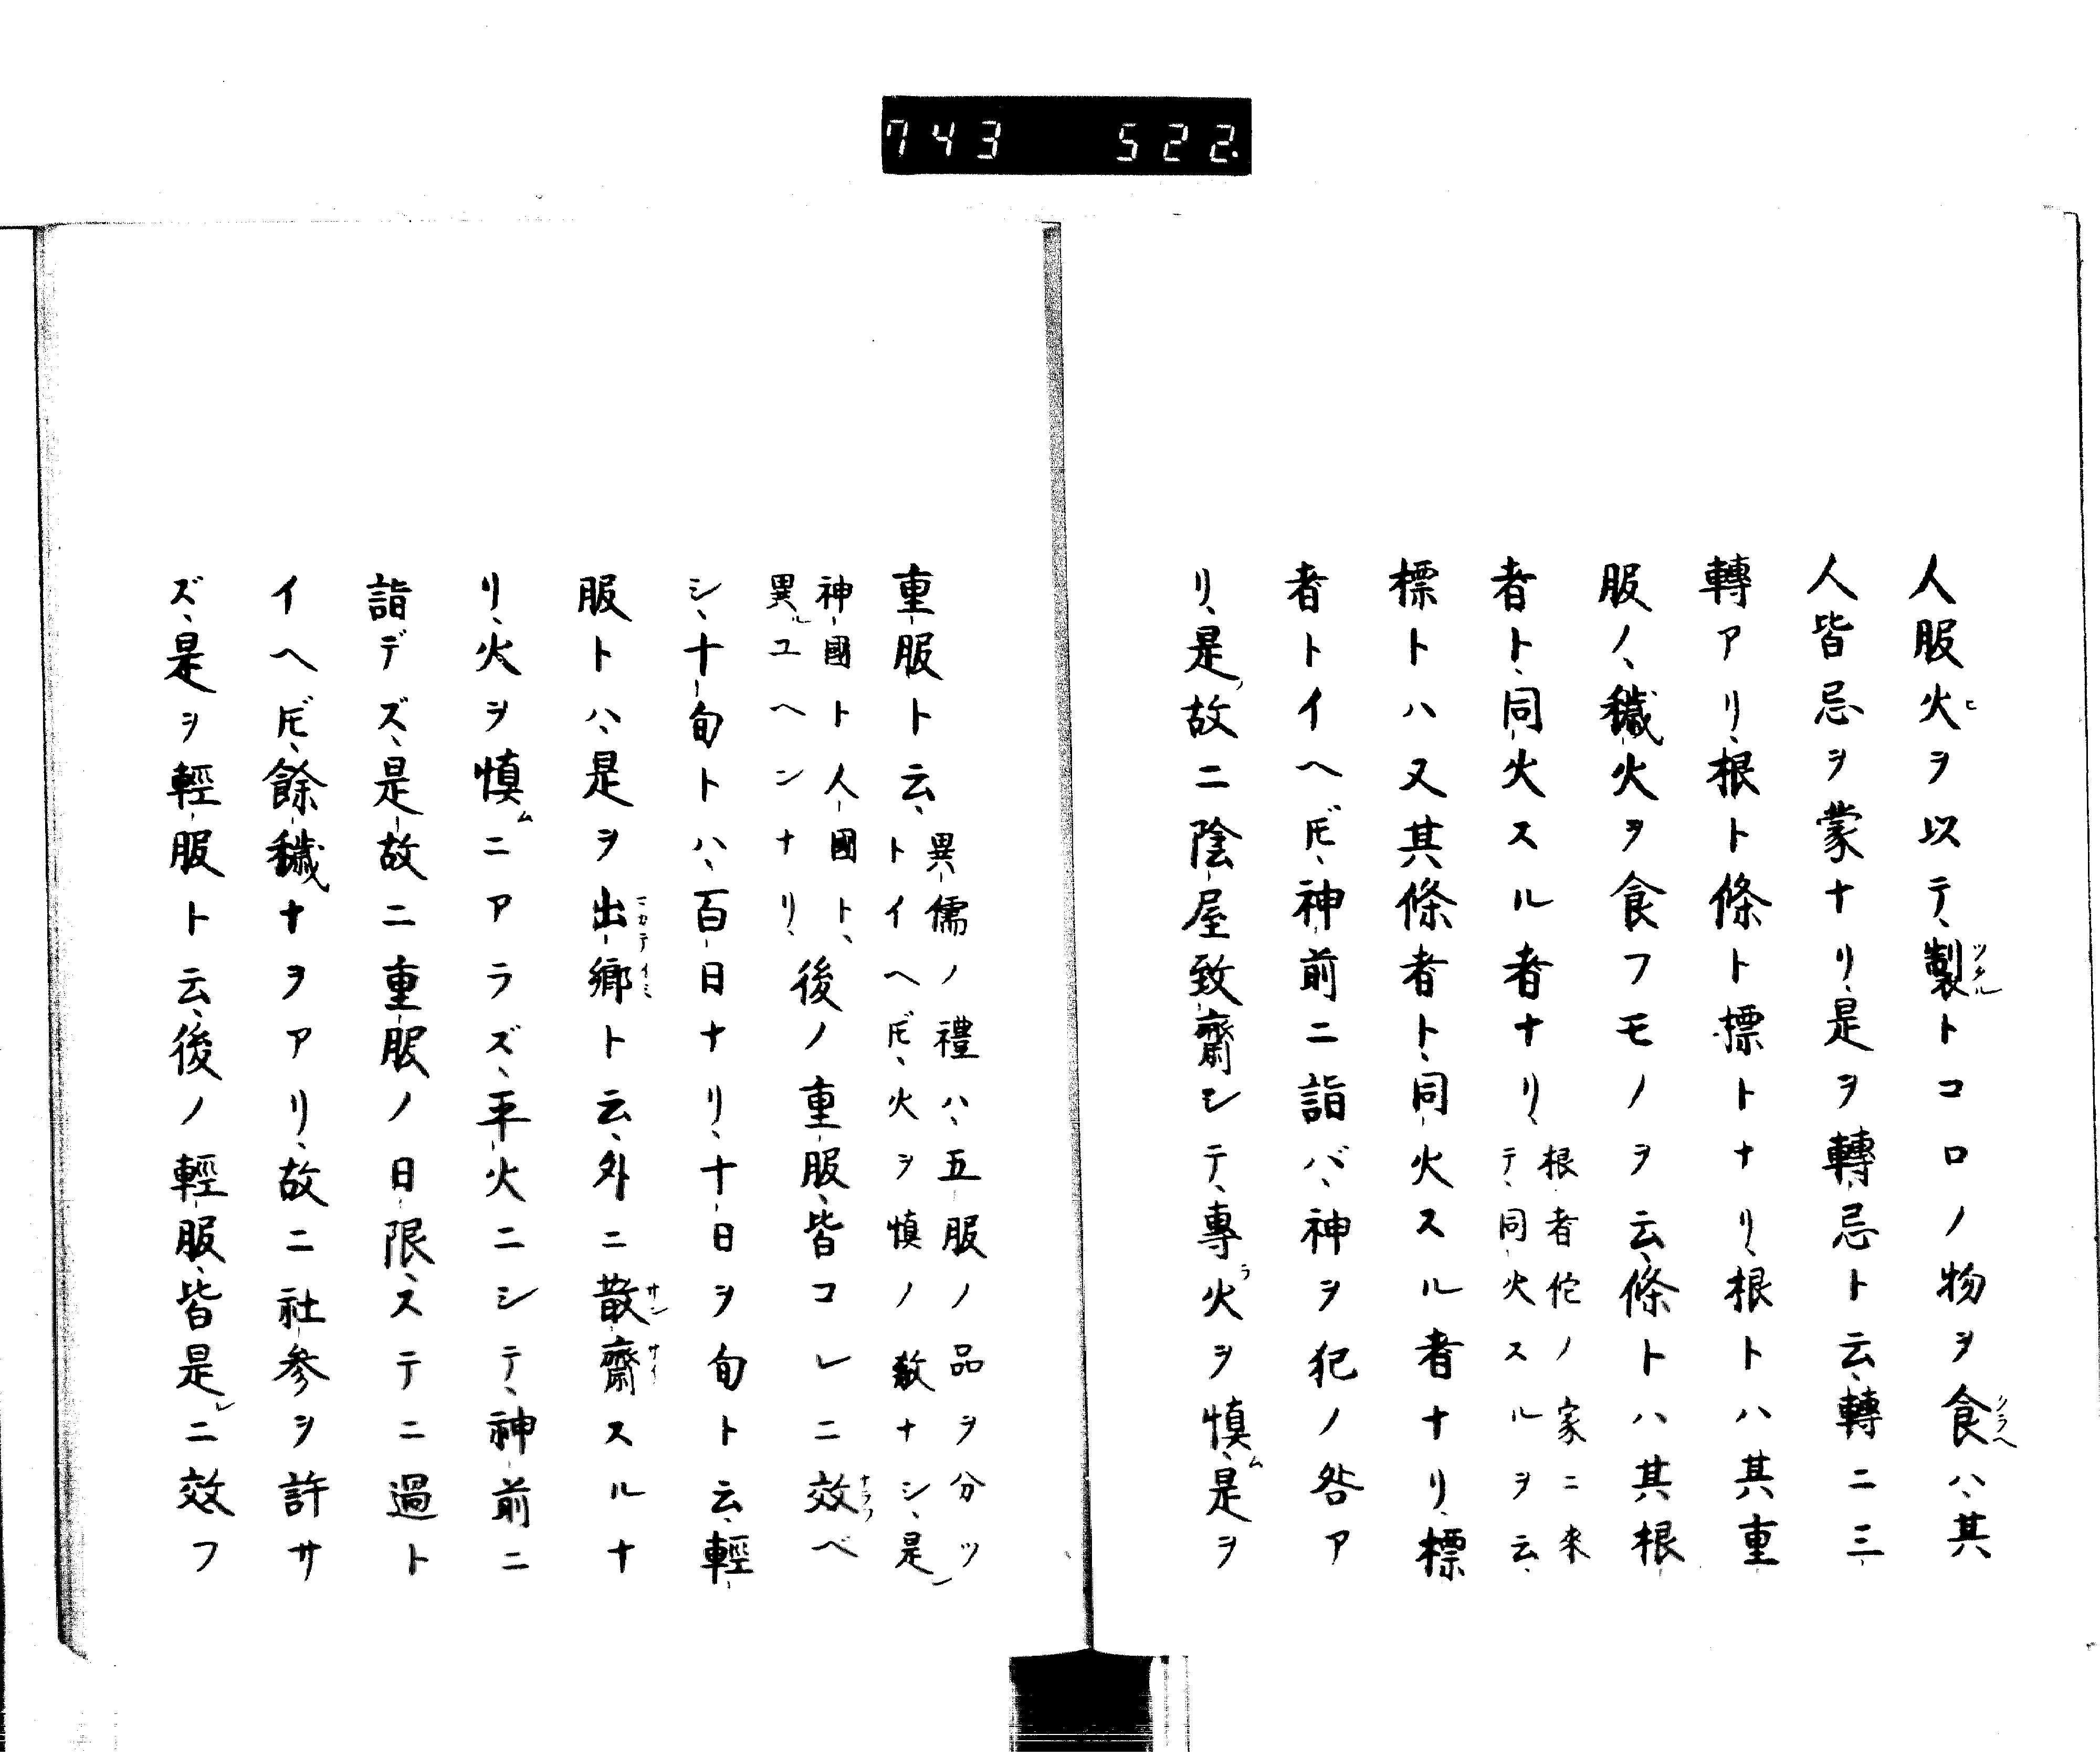 743 522.
人服火ヲ以テ、製トコロノ物ヲ食ハ、其
人皆忌ヲ蒙ナリ、是ヲ轉忌ト云、轉ニ三
轉アリ、根ト條ト標トナリ、根トハ其重
服ノ、穢火ヲ食フモノヲ云、條トハ其根
者ト、同火スル者ナリ、根者佗ノ家ニ來
テ、同火スルヲ云、
標トハ又其條者ト、同火スル者ナリ、標
者トイヘ𪜈、神前ニ詣バ、神ヲ犯ノ咎ア
リ、是故ニ陰屋致齋シテ、專火ヲ慎、是ヲ
重服ト云、異儒ノ禮ハ、五服ノ品ヲ分ツ
トイヘ𪜈、火ヲ慎ノ教ナシ、是
神國ト人國ト、
異ユヘンナリ、後ノ重服、皆コレニ效ベ
シ、十旬トハ、百日ナリ、十日ヲ旬ト云、輕
服トハ、是ヲ出郷ト云、外ニ散齋スルナ
リ、火ヲ慎ニアラズ、平火ニシテ、神前ニ
詣デズ、是故ニ重服ノ日限、ステニ過ト
イヘ𪜈、餘穢ナヲアリ、故ニ社参ヲ許サ
ズ、是ヲ輕服ト云、後ノ輕服、皆是ニ效フ